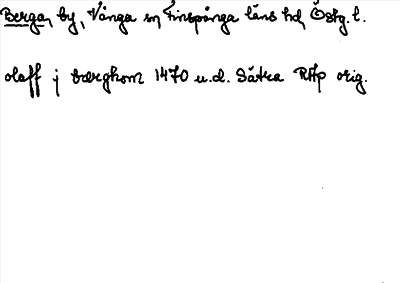 Berga, by, Vånga sn, Finspånga läns hd, Östg. l.
olaff j bærghom 1470 u.d. Sätra RAp orig.